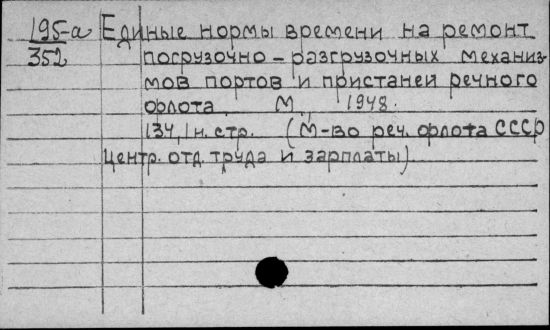 195-а Единые нормы времени на ремонт
352 погрузочно-разгрузочных механиз-
мов портов и пристаней речного
флота. М., 1948.
134, 1 н. стр. (М-во реч. флота СССР
Центр. отд. труда и зарплаты).